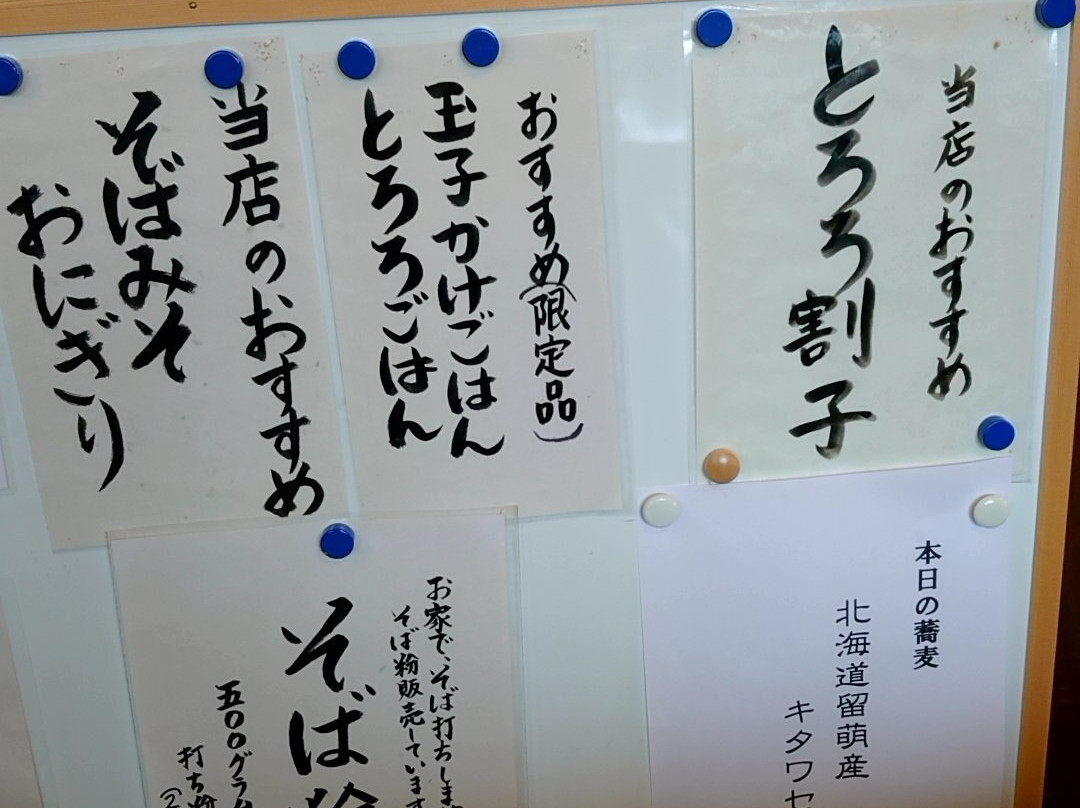 当店のおすすめ
とろろ割子
おすすめ(限定品)
玉子かけごはん
とろろごはん
当店のおすすめ
そばみそ
おにぎり
本日の蕎麦
北海道留萌産
キタワセ
お家で、そば打ちしま
そば粉販売しています
そば粉
五〇〇グラム
打ち粉